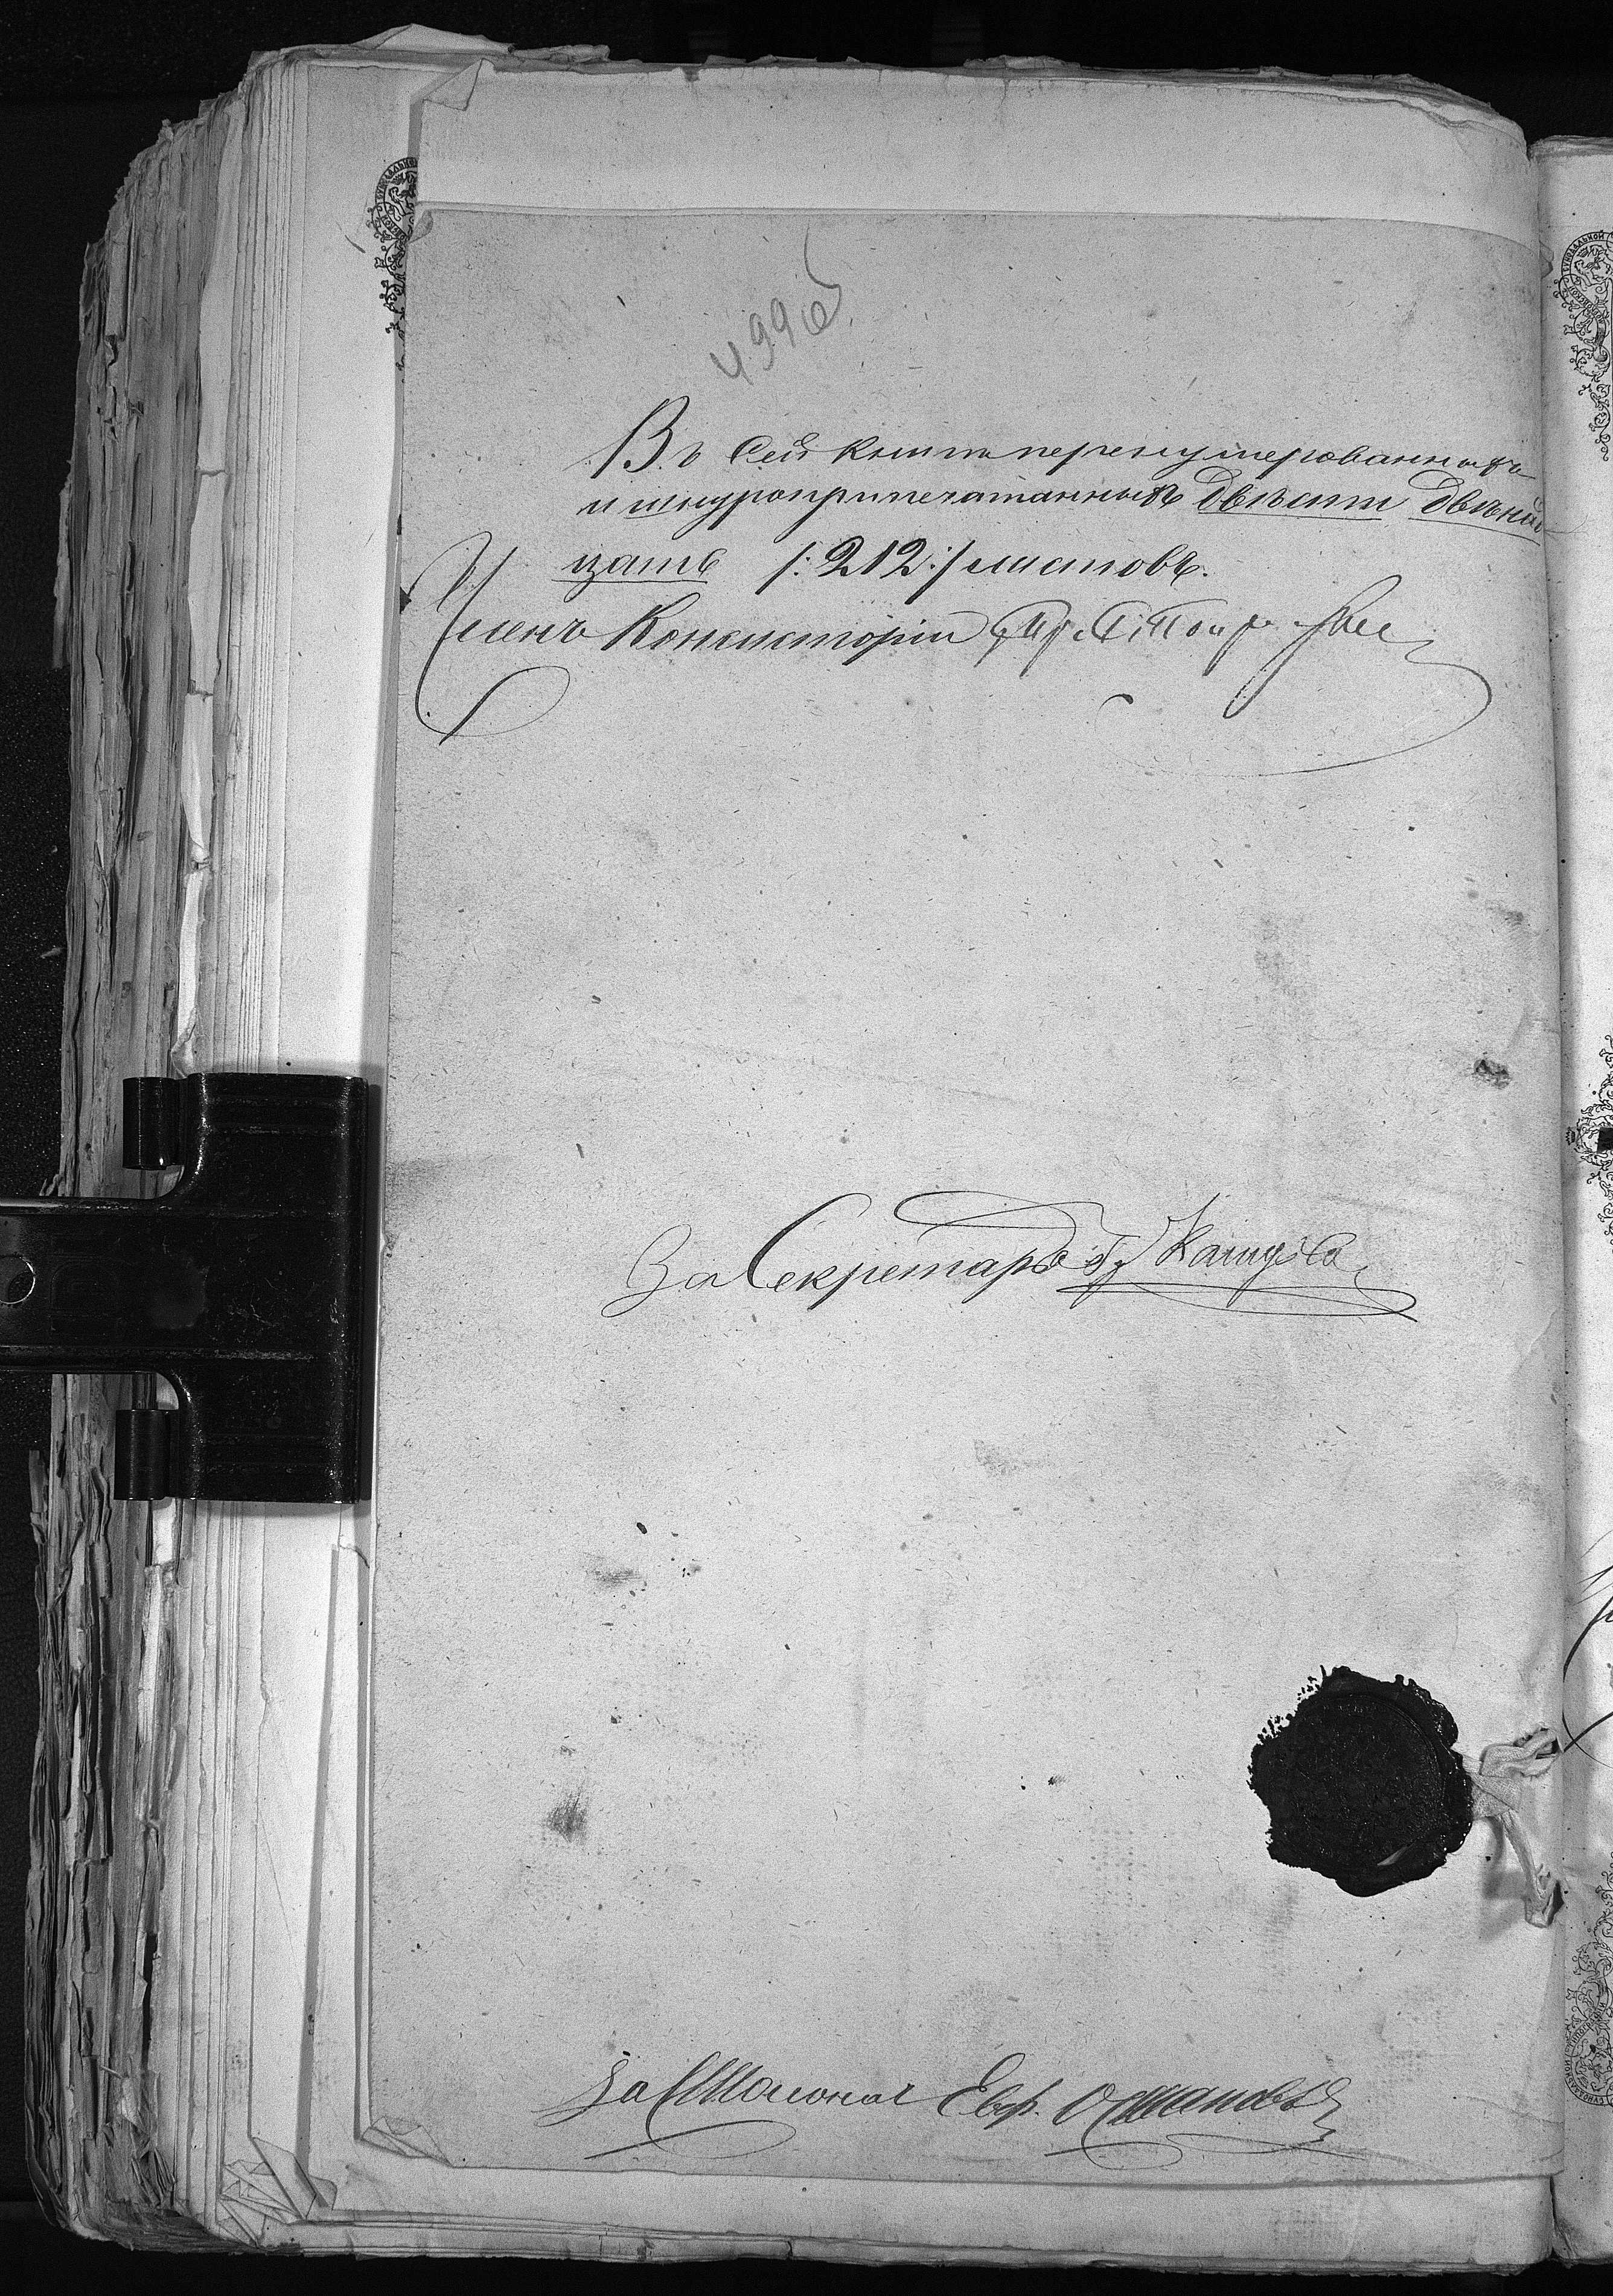 499об
Въ сей книгѣ перенумерованныхъ
и шнуроприпечатанныхъ двѣсти двѣнад
цать /:212:/ листовъ.
Членъ Консисторіи Пр.
За Секретаря
За Столонач Евф.